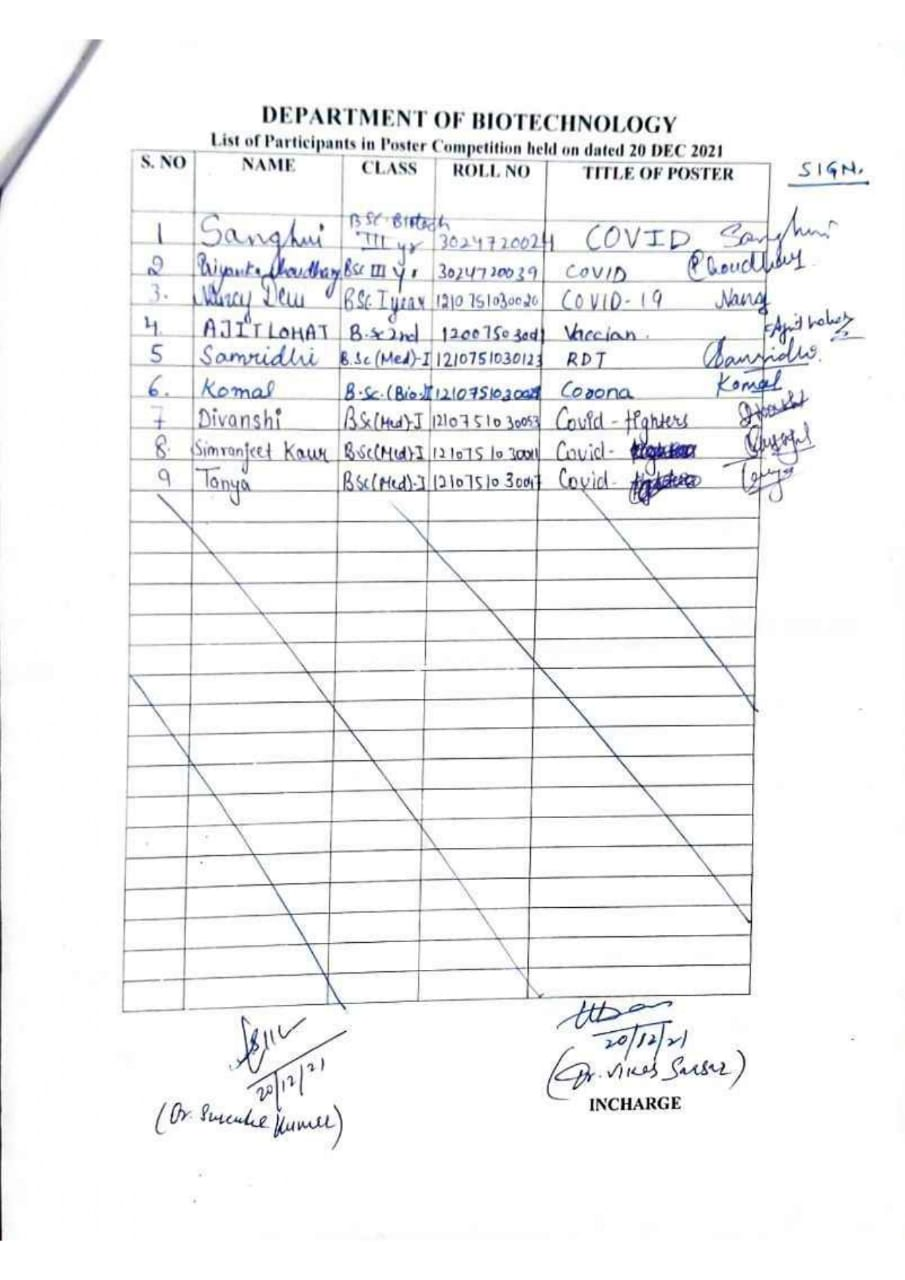 DEPARTMENT OF BIOTECHNOLOGY
List of Participants in Poster Competition held on dated 20 DEC 2021
S. NO NAME CLASS ROLL NO TITLE OF POSTER SIGN.
1 Sanghvi BSC-Biotech III yr 3024720024 COVID Sanghvi
2 Priyanka Choudhary BSc III yr 3024720039 COVID PChoudhary
3. Nancy Devi BSC I year COVID-19 Nancy
4. AJIT LOHAT B.Sc 2nd Vaccian. Ajit Lohat
5 Samridhi B.Sc (Med)-I 1210751030123 RDT Samridhi
6. Komal B.Sc. (Bio. Corona Komal
7 Divanshi BSc(Med)-I 1210751030053 Covid - fighters
8. Simranjeet Kaur BSc(Med)-I Covid-
9 Tanya BSc(Med)-I Covid- Tanya
20/12/21
(Dr. Kumar)
20/12/21
(Dr. Vikas)
INCHARGE